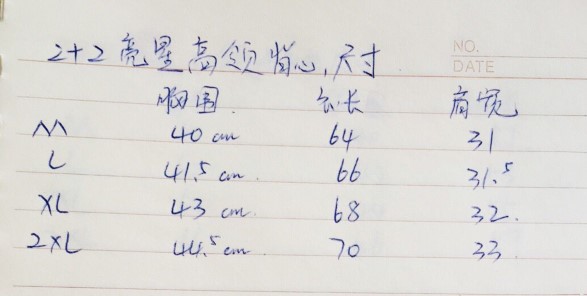 2+2 亮星高领背心,尺寸
NO.
DATE
胸围. 衣长 肩宽
M 40 cm 64 31
L 41.5 cm. 66 31.5
XL 43 cm. 68 32.
2XL 44.5 cm. 70 33.